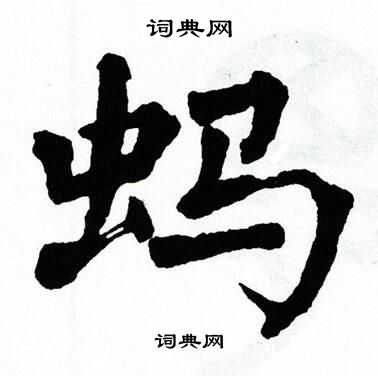 词典网
蚂
词典网